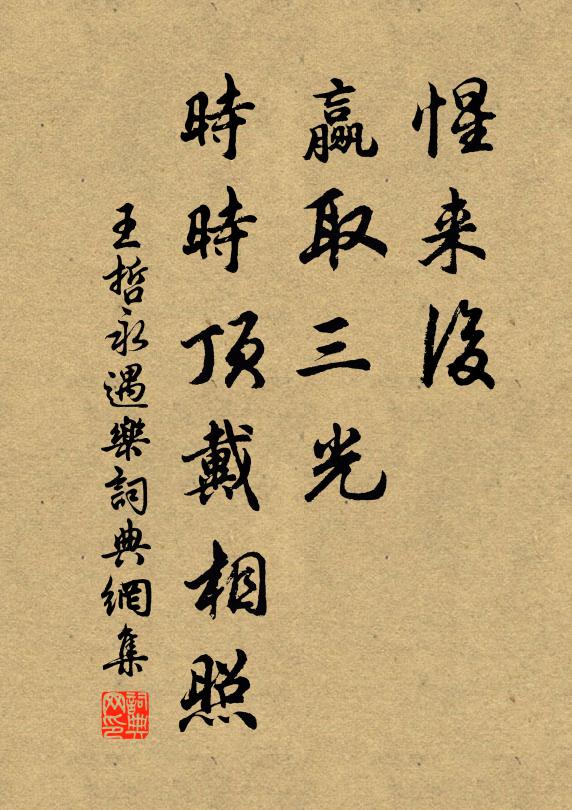 惺来後
贏取三光
時時頂戴相照
王哲永遇樂詞典網集
詞典网印